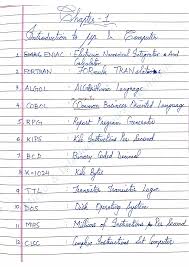 Chapter - 1
Introduction to Computer
1 ENIAC Electronic Numerical Integrator And
Calculator
2 FORTRAN FORmula TRANslation
3 ALGOL ALGorithmic Language
4 COBOL Common Business Oriented Language
5 RPG Report Program Generator
6 KIPS Kilo Instructions Per Second
7 BCD Binary Coded Decimal
8 K-1024 Kilo Byte
9 TTL Transistor Transistor Logic
10 DOS Disk Operating System
11 MIPS Millions of Instructions Per Second
12 CISC Complex Instructions Set Computer